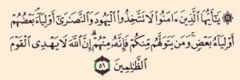 ۞ يَٰٓأَيُّهَا ٱلَّذِينَ ءَامَنُوا۟ لَا تَتَّخِذُوا۟ ٱلْيَهُودَ وَٱلنَّصَٰرَىٰٓ أَوْلِيَآءَ بَعْضُهُمْ
أَوْلِيَآءُ بَعْضٍ وَمَن يَتَوَلَّهُم مِّنكُمْ فَإِنَّهُۥ مِنْهُمْ إِنَّ ٱللَّهَ لَا يَهْدِى ٱلْقَوْمَ
ٱلظَّٰلِمِينَ ٥١